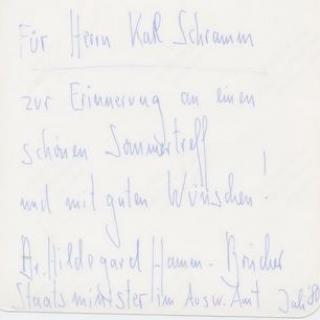 Für Herrn Karl Schramm
zur Erinnerung an einen
schönen Sommertreff
und mit guten Wünschen!
Dr. Hildegard Hamm-Brücher
Staatsminister im Ausw. Amt Juli 80